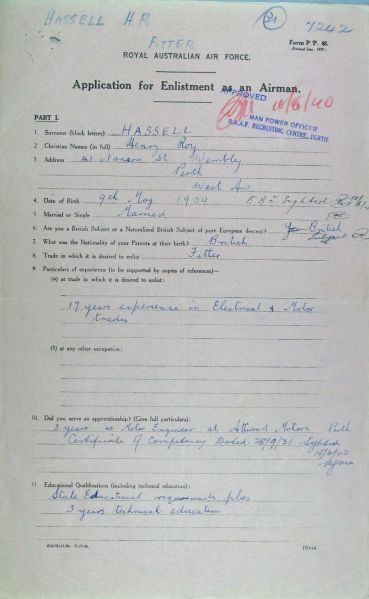 HASSELL H.R.
21
7242
FITTER
Form P/P. 48.
ROYAL AUSTRALIAN AIR FORCE.
Application for Enlistment as an Airman.
APPROVED
10/6/40
MAN POWER OFFICER
R.A.A.F. RECRUITING CENTRE, PERTH.
PART I.
1. Surname (block letters) HASSELL
2. Christian Names (in full) Henry Roy
3. Address 41 Nanson St Wembley
Perth
West Aus
4. Date of Birth 9th May 1909 Sighted
5. Married or Single Married
6. Are you a British Subject or a Naturalized British Subject of pure European descent? Yes British
7. What was the Nationality of your Parents at their birth? British
8. Trade in which it is desired to enlist Fitter
9. Particulars of experience (to be supported by copies of references)—
(a) at trade in which it is desired to enlist:
17 years experience in Electrical & Motor
trades
(b) at any other occupation:
10. Did you serve an apprenticeship? (Give full particulars):
5 years as Motor Engineer at Attwood Motors Perth
Certificate of Competency Dated 28/9/31 Sighted
10/6/40
11. Educational Qualifications (including technical education):
State Educational requirements plus
3 years technical education